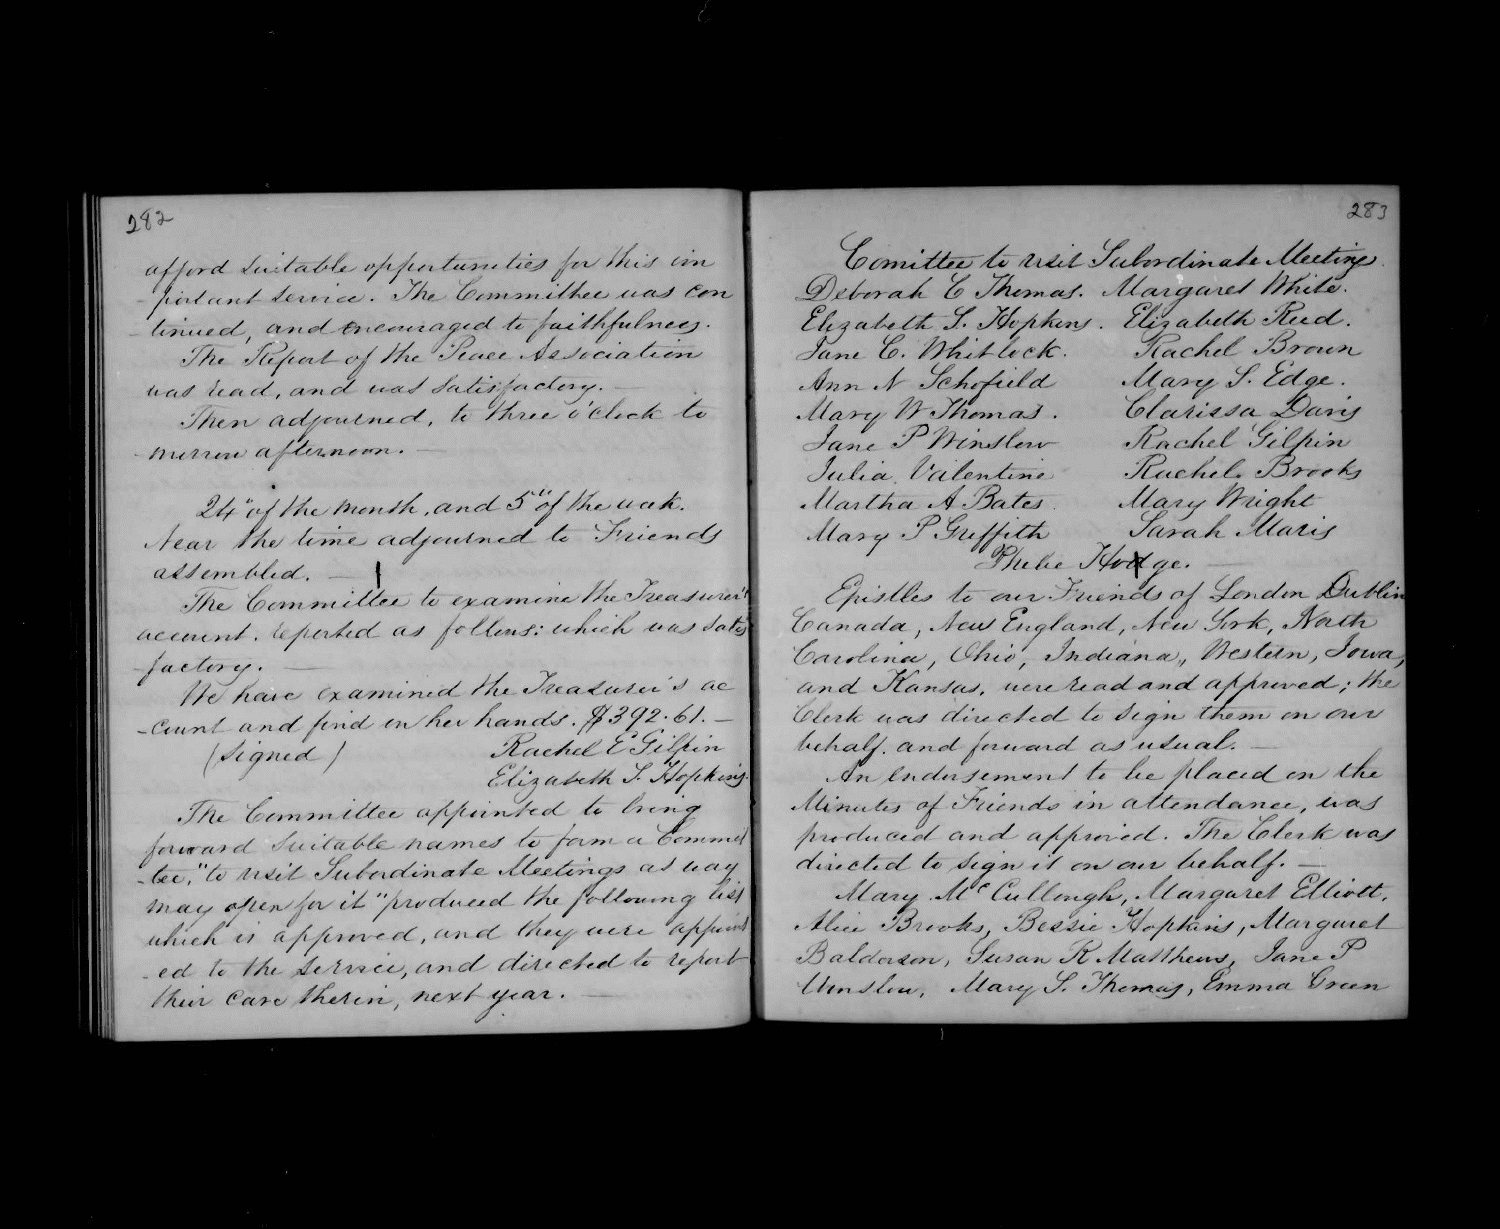 282
afford suitable opportunities for this im
-portant service. The Committee was con
-tinued, and encouraged to faithfulness.
The Report of the Peace Association
was read, and was satisfactory. —
Then adjourned, to three o'clock to
-morrow afternoon. —
24" of the month, and 5" of the week.
Near the time adjourned to Friends
assembled. —
The Committee to examine the Treasurer's
account. reported as follows: which was satis
-factory. —
We have examined the Treasurer's ac
-count and find in her hands. $392.61. —
(Signed) Rachel E Gilpin
Elizabeth S. Hopkins.
The Committee appointed to bring
forward suitable names to form a Commit
-tee, "to visit Subordinate Meetings as way
may open for it" produced the following list
which is approved, and they were appoint
-ed to the service, and directed to report
their care therein, next year. —
283
Comittee to visit Subordinate Meetings.
Deborah C Thomas. Margaret White.
Elizabeth S. Hopkins. Elizabeth Reed.
Jane C. Whitlock. Rachel Brown
Ann N Schofield Mary S. Edge.
Mary W Thomas. Clarissa Davis
Jane P Winslow Rachel Gilpin
Julia Valentine Rachel Brooks
Martha A Bates Mary Wright
Mary P Griffith Sarah Maris
Phebe Hodge. —
Epistles to our Friends of London Dublin
Canada, New England, New York, North
Carolina, Ohio, Indiana, Western, Iowa,
and Kansas, were read and approved; the
Clerk was directed to sign them on our
behalf. and forward as usual. —
An Endorsement to be placed on the
Minutes of Friends in attendance, was
produced and approved. The Clerk was
directed to sign it on our behalf. —
Mary Mc Cullough, Margaret Elliott,
Alice Brooks, Bessie Hopkins, Margaret
Balderson, Susan R Matthews, Jane P
Winslow, Mary S. Thomas, Emma Green